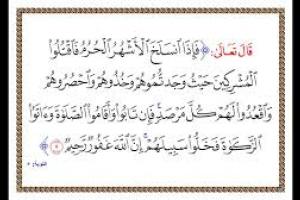 قَالَ تَعَالَى: ﴿فَإِذَا ٱنسَلَخَ ٱلْأَشْهُرُ ٱلْحُرُمُ فَٱقْتُلُوا۟
ٱلْمُشْرِكِينَ حَيْثُ وَجَدتُّمُوهُمْ وَخُذُوهُمْ وَٱحْصُرُوهُمْ
وَٱقْعُدُوا۟ لَهُمْ كُلَّ مَرْصَدٍ ۚ فَإِن تَابُوا۟ وَأَقَامُوا۟ ٱلصَّلَوٰةَ وَءَاتَوُا۟
ٱلزَّكَوٰةَ فَخَلُّوا۟ سَبِيلَهُمْ ۚ إِنَّ ٱللَّهَ غَفُورٌ رَّحِيمٌ ٥﴾
التوبة: ٥